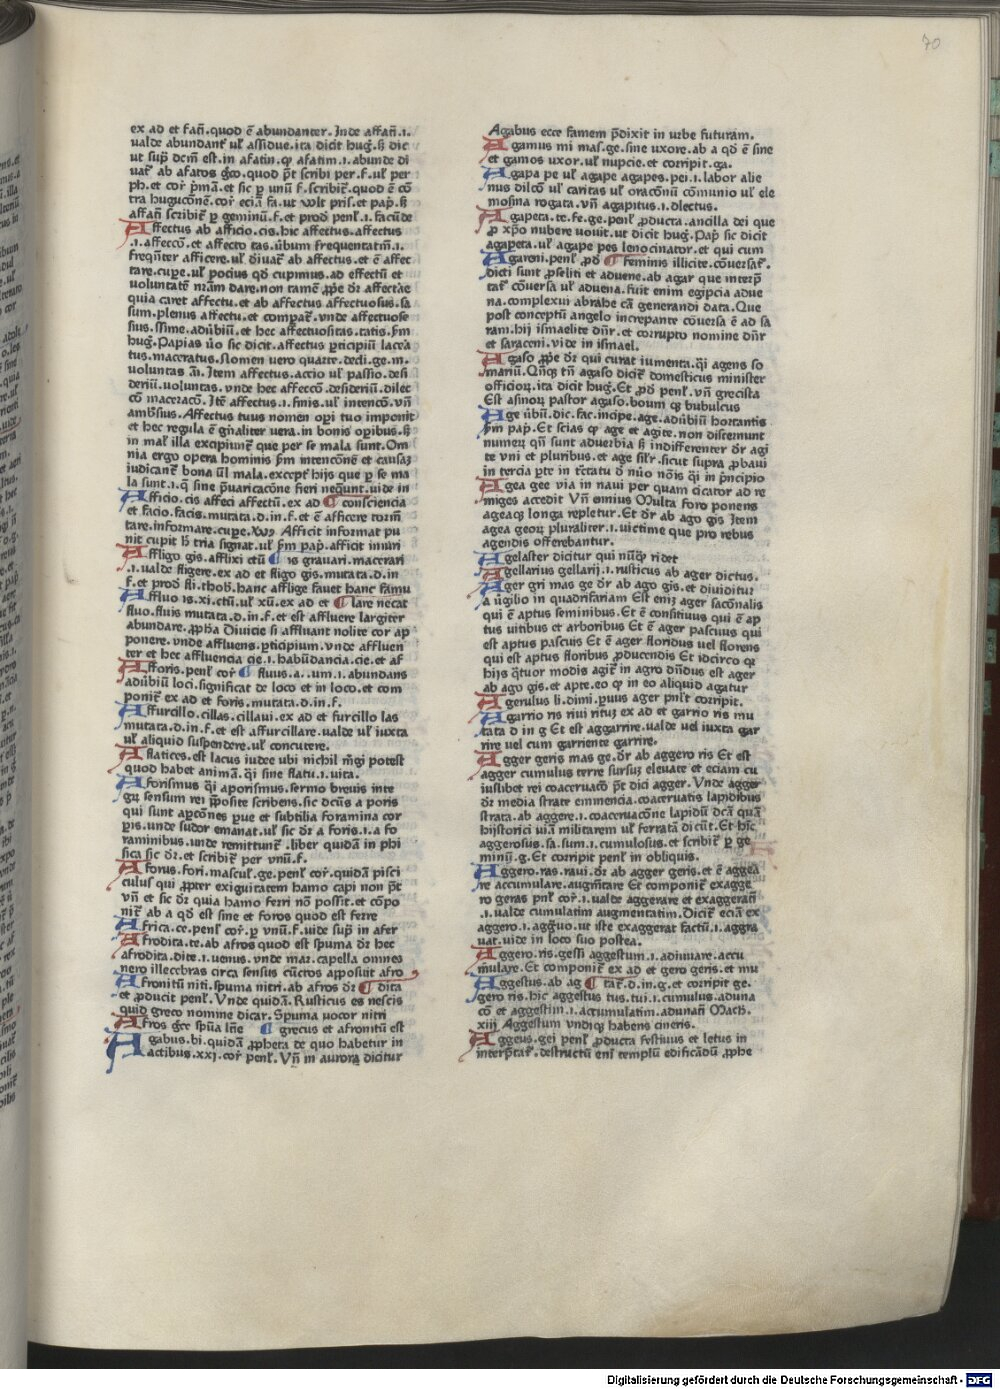 70
ex ad et fañ.quod ē abundanter. Inde affañ.i.
ualde abundanť uł assidue.ita dicit hug̃.ß dic
ut sup̃ dc̃m est.in afatin.ꝙ afatim.i.abunde di
uať ab afatos gc̃o.quod p̃t scribi per.f.uł per
ph.et cor̃ p̃mã.et sic ꝑ unũ f.scribiť.quod ē cõ
tra huguconē.cor̃ eciã fa.ut wlt pris̃.et pap̃.ß
affañ scribiť ꝑ geminũ.f.et prod̃ penł.i.facũde
Affectus ab afficio.cis.hic affectus.affectus
.i.affeccõ.et affecto tas.ũbum frequentatiũ.i.
freq̃nter afficere.uł ď̃iuať ab affectus.et ē affec
tare.cuꝑe.uł pocius qď cupimus.ad effectũ et
voluntatē nr̃am dare.non tamē ꝓp̃e dr̃ affectãe
quia caret affectu.et ab affectus affectuosus.sa
sum.plenus affectu.et compať.vnde affectuose
sius.ssime.adũbiũ.et hec affectuositas.tatis.ẜm
hug̃.Papias ũo sic dicit.affectus ꝑticipiũ lacẽa
tus.maceratus.Nomen vero quarte.decli.ge.m.
voluntas añ.Item affectus.accio uł passio.desi
deriũ.uoluntas.vnde hec affeccõ.desideriũ.dilec
cõ maceracõ.Itē affectus.i.finis.uł intencõ.vñ
ambr̃sius.Affectus tuus nomen oꝑi tuo imponit
et hec regula ē gñaliter uera.in bonis oꝑibus.ß
in mał illa excipiunť que per se mala sunt.Om
nia ergo opera hominis ẜm intenconē et causaȝ
iudicanť bona uł mala.excepť hijs que ꝑ se ma
la sunt.i.q̃ sine p̃uaricacõne fieri neq̃unt.uide in
Afficio.cis affeci affectũ.ex ad ¶ consciencia
et facio.facis.mutata.d.in.f.et ē afficere torm̃
tare.informare.cuꝑe.Xꝰ Afficit informat pu
nit cupit h̃ tria signat.uł ẜm pap̃.afficit iniuri
Affligo gis.afflixi ctũ ¶ is grauari.macerari
.i.ualde fligere.ex ad et fligo gis.mutata.d.in
f.et prod̃ fli.thob̃.hanc afflige fauet hanc famu
Affluo is.xi.ctũ.uł xũ.ex ad et ¶ lare necat
fluo.fluis mutata.d.in.f.et est affluere largiter
abundare.ꝓphã Diuicie si affluant nolite cor ap
ponere.vnde affluens.ꝑticipium.vnde affluen
ter et hec affluencia cie.i.habũdancia.cie.et af
Afforis.penł cor̃ ¶ fluus.a..um.i.abundans
adũbiũ loci.significat de loco et in loco.et com
poniť ex ad et foris.mutata.d.in.f.
Affurcillo.cillas.cillaui.ex ad et furcillo las
mutata.d.in.f.et est affurcillare.ualde uł iuxta
uł aliquid suspendere.uł concutere.
Aflatices.est lacus iudee ubi nichil m̃gi potest
quod habet animã.q̃i sine flatu.i.uita.
Aforismus q̃i aporismus.sermo breuis inte
gȝ sensum rei p̃posite scribens.sic dcũs a poris
qui sunt aꝑcões ꝑue et subtilia foramina cor
ꝑis.unde sudor emanat.uł sic dr̃ a foris.i.a fo
raminibus.unde remittunť .liber quidã in phi
sica sic dr̃.et scribiť per vnũ.f.
Aforus.fori.mascuł.ge.penł cor̃.quidã pisci
culus qui ꝓpter exiguitatem hamo capi non p̃t
vñ et sic dr̃ quia hamo ferri nõ possit.et cõpo
niť ab a qď est sine et foros quod est ferre
Africa.ce.penł cor̃.ꝑ vnũ.f.uide sup̃ in afer
Afrodita.te.ab afros quod est spuma dr̃ hec
afrodita.dite.i.uenus.vnde mar̃.capella omnes
nero illecebras circa sensus cũctros apposuit afro
Afronitũ niti.spuma nitri.ab afros dr̃ ¶ dita
et ꝓducit penł.Vnde quidã.Rusticus es nescis
quid greco nomine dicar.Spuma uocor nitri
Afros gc̃e spũa lñe ¶ grecus et afronitũ est
Agabus.bi.quidã ꝓpheta de quo habetur in
actibus.xxj.cor̃ penł.Vñ in aurora dicitur
Agabus ecce famem p̃dixit in urbe futuram.
Agamus mi mas.ge.sine uxore.ab a qď ē sine
et gamos uxor.uł nupcie.et corripit.ga.
Agapa pe uł agape agapes.pei.i.labor alie
nus dilcõ uł caritas uł oraconũ cõmunio uł ele
mosina rogata.vñ agapitus.i.dlectus.
Agapeta.te.fe.ge.penł ꝓducta.ancilla dei que
ꝓ xp̃o nubere uouit.ut dicit hug̃.Pap̃ sic dicit
agapeta.uł agape pes lenocinator.et qui cum
Agareni.penł ꝓď ¶ feminis illicite.cõuersať.
dicti sunt ꝓseliti et aduene.ab agar que interp̃
tať cõuersa uł aduena.fuit enim egipcia adue
na.complexui abrahe cã generandi data.Que
post conceptũ angelo increpante cõuersa ē ad sa
ram.hij ismaelite dñr̃.et corrupto nomine dñr̃
et saraceni.vide in ismael.
Agaso ꝓp̃e dr̃ qui curat iumenta.q̃i agens so
mariũ.Qñqȝ tñ agaso diciť domesticus minister
officioȝ.ita dicit hug̃.Et ꝓď penł.vñ grecista
Est asinoȝ pastor agaso.boum qȝ bubulcus
Age ũbũ.dic.fac.incipe.age.adũbiũ hortantis
ẜm pap̃.Et scias ꝙ age et agite.non discernunt
numeȝ qñ sunt aduerbia ß indifferenter dr̃ agi
te vni et pluribus.et age siłr.sicut supra ꝓbaui
in tercia ꝑte in tc̃tatu ď nũo nõis q̃i in p̃ncipio
Agea gee via in naui per quam cicator ad re
miges accedit Vñ ennius Multa foro ponens
ageaqȝ longa repletur.Et dr̃ ab ago gis Item
agea geoȝ pluraliter.i.uictime que pro rebus
agendis offerebantur.
Agelaster dicitur qui nũqȝ ridet
Agellarius gellarij.i.rusticus ab ager dictus.
Ager gri mas ge dr̃ ab ago gis.et diuiditur
a ũgilio in quadrifariam Est enĩȝ ager sacõnalis
qui ē aptus seminibus.Et ē consitiuus qui ē ap
tus uitibus et arboribus Et ē ager pascuus qui
est aptus pascuis Et ē ager floridus uel florens
qui est aptus floribus ꝓducendis Et idcirco qȝ
hijs q̃tuor modis agiť in agro dñdus est ager
ab ago gis.et apte.eo ꝙ in eo aliquid agatur
Agerulus li.dimi.ꝑuus ager pnłt corripit.
Agarrio ris riui rituȝ ex ad et garrio ris mu
tata d in g Et est aggarrire.ualde vel iuxta gar
rire vel cum garriente garrire.
Agger geris mas ge.dr̃ ab aggero ris Et est
agger cumulus terre sursuȝ eleuate et eciam cu
iuslibet rei coaceruacõ p̃t dici agger.Vnde agger
dr̃ media strate eminencia.coaceruatis lapidibus
strata.ab aggere.i.coaceruacõne lapidũ dcã quã
hijstorici uiã militarem uł ferratã dicũt.Et hĩc
aggerosus.sa.sum.i.cumulosus.et scribiť ꝑ ge
minũ.g.Et corripit penł in obliquis.
Aggero.ras.raui.dr̃ ab agger geris.et ē aggea
re accumulare.augm̃tare Et componiť exagge
ro geras pnł cor̃.i.ualde aggerare et exaggerañ
.i.ualde cumulatim augmentatim.Diciť eciã ex
aggero.i.agg̃uo.ut iste exaggerat factũ.i.aggra
uat.uide in loco suo postea.
Aggero.ris.gessi aggestum.i.adiuuare.accu
mulare.Et componiť ex ad et gero geris.et mu
Aggestus.ab ag ¶ tať.d.in.g.et corripit ge.
gero ris.hic aggestus tus.tui.i.cumulus.aduna
cõ et aggestim.i.accumulatim.adunañ Mach̃.
xiij Aggestum vndiqȝ habens cineris.
Aggeus.gei penł ꝓducta festiuus et letus in
interp̃tať.destructũ enł templũ edificãdũ ꝓphe
Digitalisierung gefördert durch die Deutsche Forschungsgemeinschaft - DFG